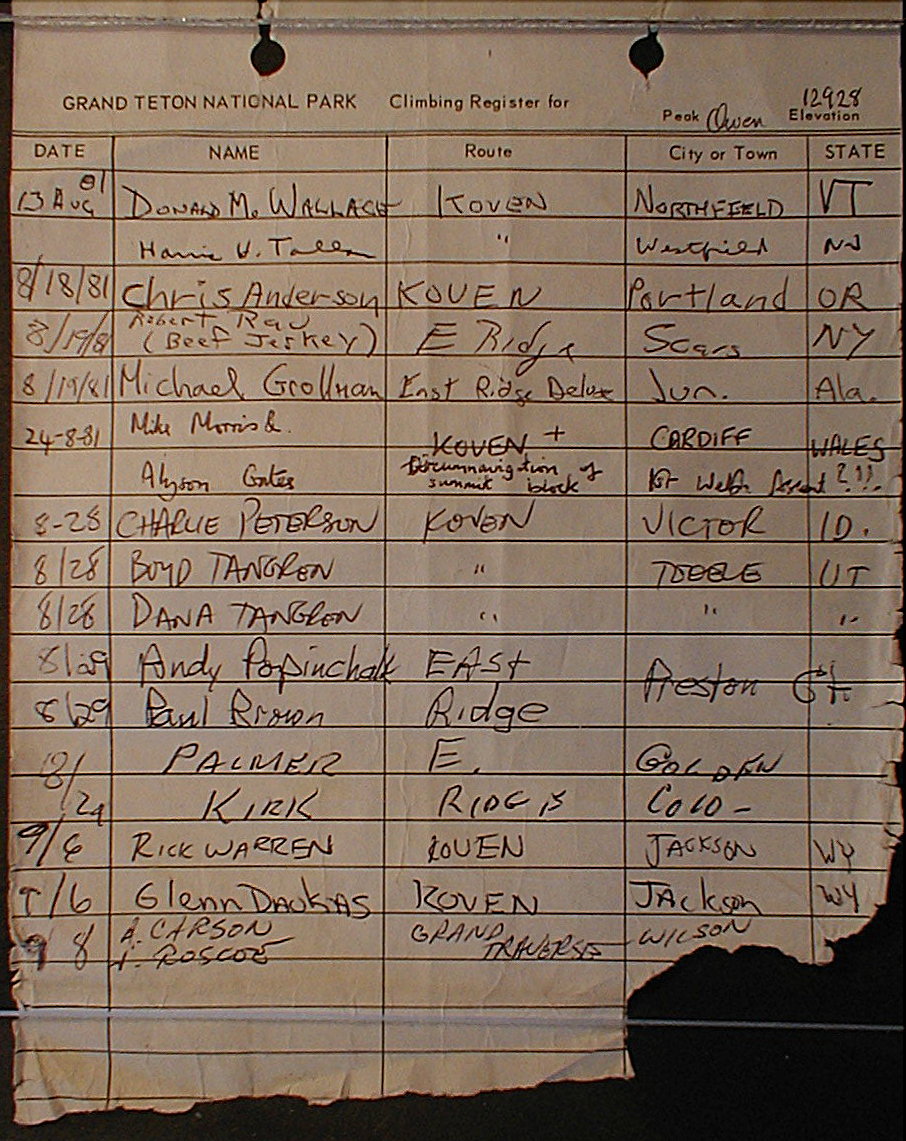 12928
GRAND TETON NATIONAL PARK Climbing Register for Peak Owen Elevation
DATE NAME Route City or Town STATE
13 Aug 81 DONALD M. WALLACE KOVEN NORTHFIELD VT
" Westfield NJ
8/18/81 Chris Anderson KOVEN Portland OR
Robert
8/19/81 (Beef Jerkey) E Ridge NY
8/19/81 Michael Grollman East Ridge Deluxe Jun. Ala.
Mike Morris &
24-8-81 KOVEN + CARDIFF WALES
Alyson Gates circumnavigation of summit block 1st Welsh Ascent ?!!.
8-28 CHARLIE PETERSON KOVEN VICTOR ID.
8/28 BOYD TANGREN " TOOELE UT
8/28 DANA TANGREN " " "
8/29 Andy Popinchalk EAST Preston Ct.
8/29 Paul Brown Ridge
8/ PALMER E. GOLDEN
29 KIRK RIDGE COLO-
9/6 RICK WARREN KOVEN JACKSON WY
9/6 Glenn Daukas KOVEN JACkson WY
9 8 A. CARSON GRAND WILSON
ROSCOE TRAVERSE